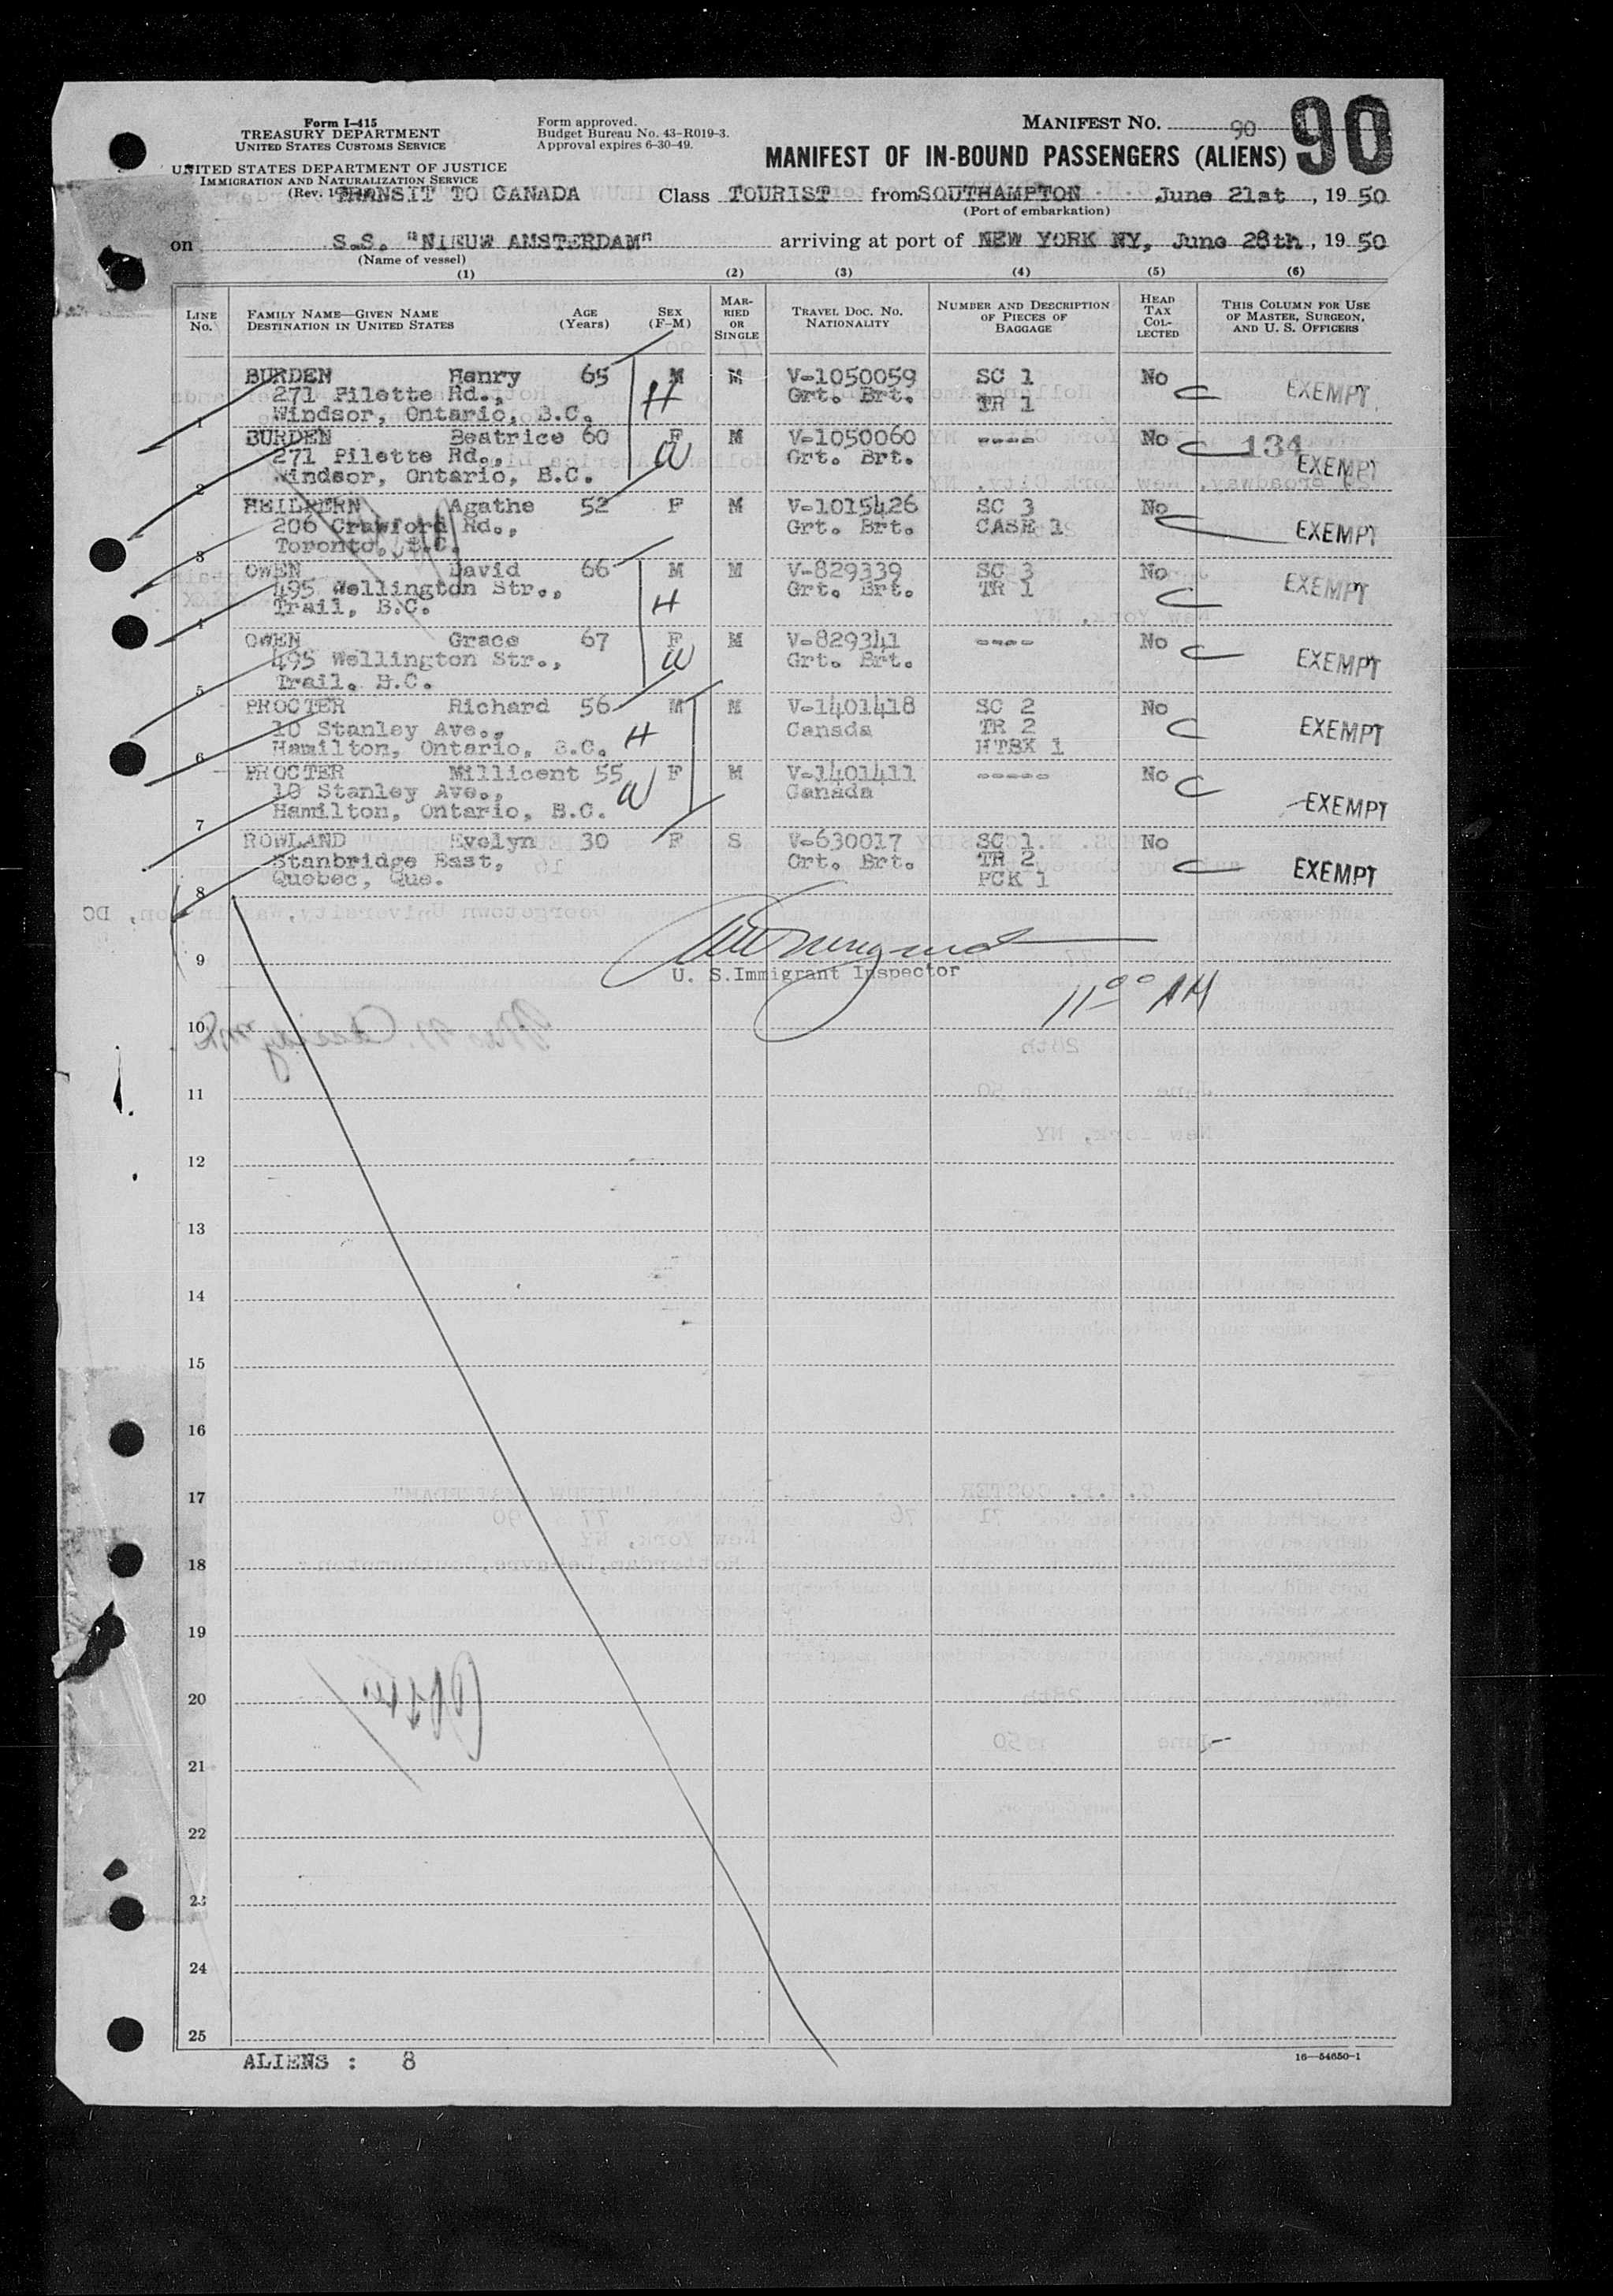 Form I-415
TREASURY DEPARTMENT
UNITED STATES CUSTOMS SERVICE
UNITED STATES DEPARTMENT OF JUSTICE
IMMIGRATION AND NATURALIZATION SERVICE
(Rev. 1
TRANSIT TO CANADA
Form approved.
Budget Bureau No. 43-R019-3.
Approval expires 6-30-49.
MANIFEST NO. 90
90
MANIFEST OF IN-BOUND PASSENGERS (ALIENS)
Class TOURIST from SOUTHAMPTON June 21st, 19 50
(Port of embarkation)
on S.S. "NIEUW AMSTERDAM" arriving at port of NEW YORK NY, June 28th, 19 50
(Name of vessel)
(1) (2) (3) (4) (5) (6)
LINE NO.
FAMILY NAME—GIVEN NAME
DESTINATION IN UNITED STATES
AGE (Years)
SEX (F-M)
MARRIED OR SINGLE
TRAVEL DOC. NO.
NATIONALITY
NUMBER AND DESCRIPTION OF PIECES OF BAGGAGE
HEAD TAX COLLECTED
THIS COLUMN FOR USE OF MASTER, SURGEON, AND U. S. OFFICERS
BURDEN Henry 65 M M V-1050059 SC 1 No
271 Pilette Rd., H Grt. Brt. TR 1 C EXEMPT
1 Windsor, Ontario, B.C.
BURDEN Beatrice 60 F M V-1050060 ---- No C 134
271 Pilette Rd., W Grt. Brt. EXEMPT
2 Windsor, Ontario, B.C.
HEILPERN Agathe 52 F M V-1015426 SC 3 No
206 Crawford Rd., Grt. Brt. CASE 1 C EXEMPT
3 Toronto, B.C.
OWEN David 66 M M V-829339 SC 3 No
495 Wellington Str., H Grt. Brt. TR 1 C EXEMPT
4 Trail, B.C.
OWEN Grace 67 F M V-829341 ---- No
495 Wellington Str., W Grt. Brt. C EXEMPT
5 Trail. B.C.
PROCTER Richard 56 M M V-1401418 SC 2 No
10 Stanley Ave., H Canada TR 2 C EXEMPT
6 Hamilton, Ontario, B.C. HTBX 1
PROCTER Millicent 55 F M V-1401411 ----- No
10 Stanley Ave., W Canada C EXEMPT
7 Hamilton, Ontario, B.C.
ROWLAND Evelyn 30 F S V-630017 SC 1 No
Stanbridge East, Grt. Brt. TR 2 C EXEMPT
8 Quebec, Que. PCK 1
9
U. S. Immigrant Inspector
11 00 AM
10
11
12
13
14
15
16
17
18
19
20
21
22
23
24
25
ALIENS : 8
16—54650-1